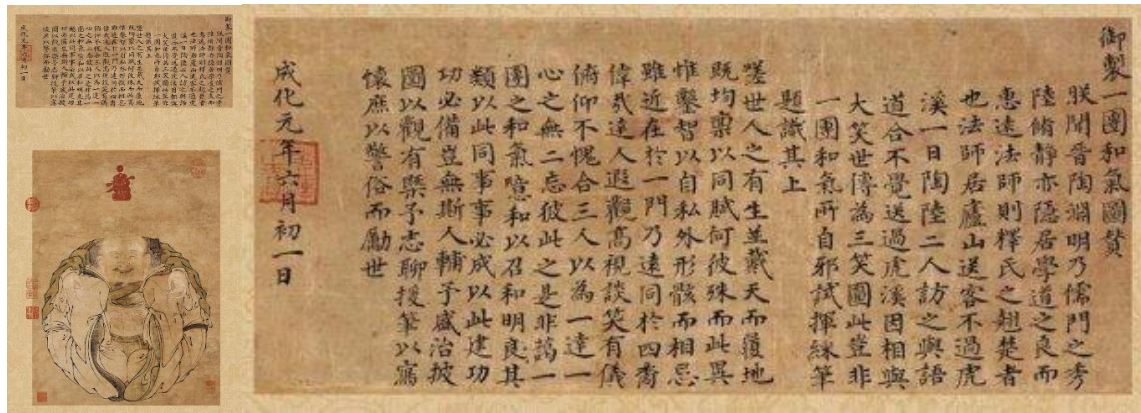 御製一團和氣圖贊
朕聞晉陶淵明乃儒門之秀
陸脩靜亦隱居學道之良而
惠遠法師則釋氏之翹楚者
也法師居廬山送客不過虎
溪一日陶陸二人訪之與語
道合不覺送過虎溪因相與
大笑世傳為三笑圖此豈非
一團和氣所自邪試揮綵筆
題識其上
嗟世人之有生並戴天而覆地
既均稟以同賦何彼殊而此異
惟鑿智以自私外形骸而相忌
雖近在於一門乃遠同於四裔
偉哉達人遐觀高視談笑有儀
俯仰不愧合三人以為一達一
心之無二忘彼此之是非藹一
團之和氣噫和以召和明良其
類以此同事事必成以此建功
功必備豈無斯人輔予盛治披
圖以觀有槩予志聊援筆以寫
懷庶以警俗而勵世
成化元年六月初一日